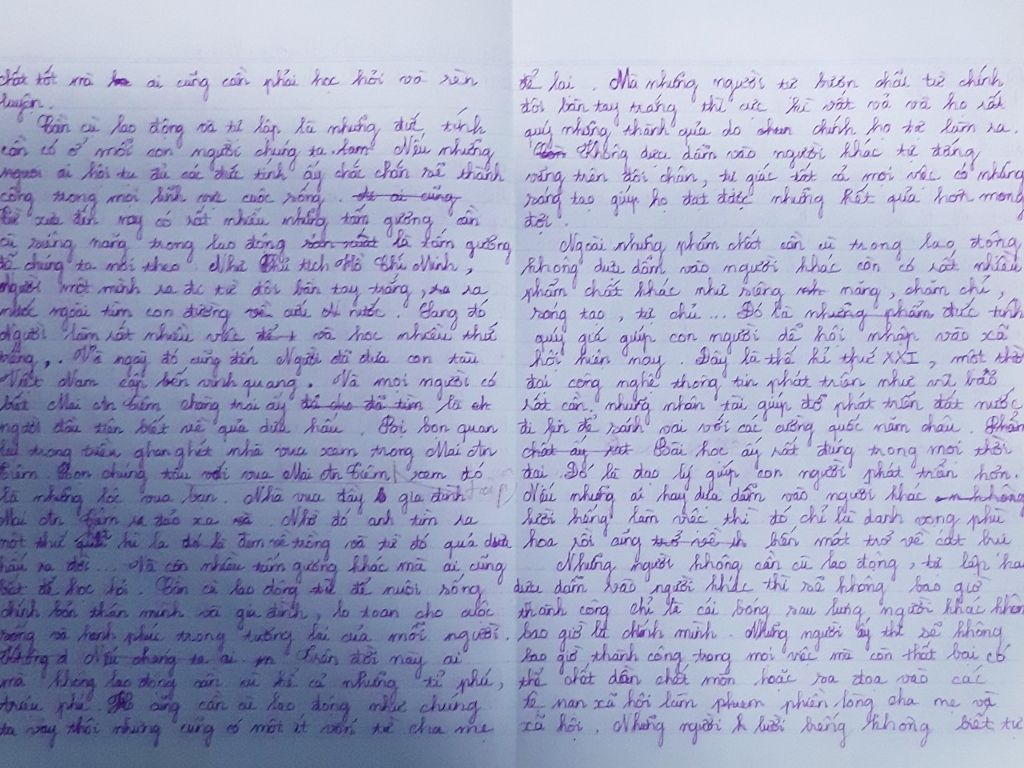 chất tốt mà ai cũng cần phải học hỏi và rèn
luyện.
Cần cù lao động và tự lập là những đức tính
cần có ở mỗi con người chúng ta. Nếu những
ai hội tụ đủ các đức tính ấy chắc chắn sẽ thành
công trong mọi lĩnh vực cuộc sống.
Từ xưa đến nay có rất nhiều những tấm gương cần
cù siêng năng trong lao động là tấm gương
để chúng ta noi theo. Như Chủ tịch Hồ Chí Minh,
người một mình ra đi từ đôi bàn tay trắng, ra
nước ngoài tìm con đường cứu nước. Sang đó
Người làm rất nhiều việc và học nhiều thứ
tiếng. Và ngày đó cũng đến Người đã đưa con tàu
Việt Nam cập bến vinh quang. Và mọi người có
biết Mai An Tiêm chàng trai ấy là
người đầu tiên biết về quả dưa hấu. Bọn quan
lại trong triều ghen ghét nhà vua xem trong Mai An
Tiêm chúng tâu với vua Mai An Tiêm xem đó
là những lộc vua ban. Nhà vua đầy gia đình
Mai An Tiêm ra đảo xa. Nhờ đó anh tìm ra
một thứ lạ đem về trồng và từ đó quả dưa
hấu ra đời... Và còn nhiều tấm gương khác mà ai cũng
biết để học hỏi. Cần cù lao động để nuôi sống
chính bản thân mình và gia đình, lo toan cho cuộc
sống và hạnh phúc trong tương lai của mỗi người.
Nếu chúng ta ai Trên đời này ai
mà không lao động cần cù kể cả những tỉ phú,
triệu phú cũng cần cù lao động như chúng
ta vậy thôi nhưng cũng có một ít vốn từ cha mẹ
để lại. Mà những người tự bươn chải từ chính
đôi bàn tay trắng thì cực kì vất vả và họ rất
quý những thành quả do chính họ tự làm ra.
Không dựa dẫm vào người khác tự đứng
vững trên đôi chân, tự giác tất cả mọi việc có những
sáng tạo giúp họ đạt được những kết quả hơn mong
đợi.
Ngoài những phẩm chất cần cù trong lao động
không dựa dẫm vào người khác còn có rất nhiều
phẩm chất khác như siêng năng, chăm chỉ,
sáng tạo, tự chủ... Đó là những phẩm đức tính
quý giá giúp con người dễ hội nhập vào xã
hội hiện nay. Đây là thế kỉ thứ XXI, một thời
đại công nghệ thông tin phát triển như vũ bão
rất cần những nhân tài giúp đỡ phát triển đất nước
đi lên để sánh vai với các cường quốc năm châu.
Bài học ấy rất đúng trong mọi thời
đại. Đó là đạo lý giúp con người phát triển hơn.
Nếu những ai hay dựa dẫm vào người khác
lười biếng làm việc thì đó chỉ là danh vọng phù
hoa rồi cũng biến mất trở về cát bụi
Những người không cần cù lao động, tự lập hay
dựa dẫm vào người khác thì sẽ không bao giờ
thành công chỉ là cái bóng sau lưng người khác không
bao giờ là chính mình. Những người ấy thì sẽ không
bao giờ thành công trong mọi việc mà còn thất bại có
thể chết dần chết mòn hoặc sa đọa vào các
tệ nạn xã hội làm phiền lòng cha mẹ và
xã hội. Những người lười biếng không biết tự